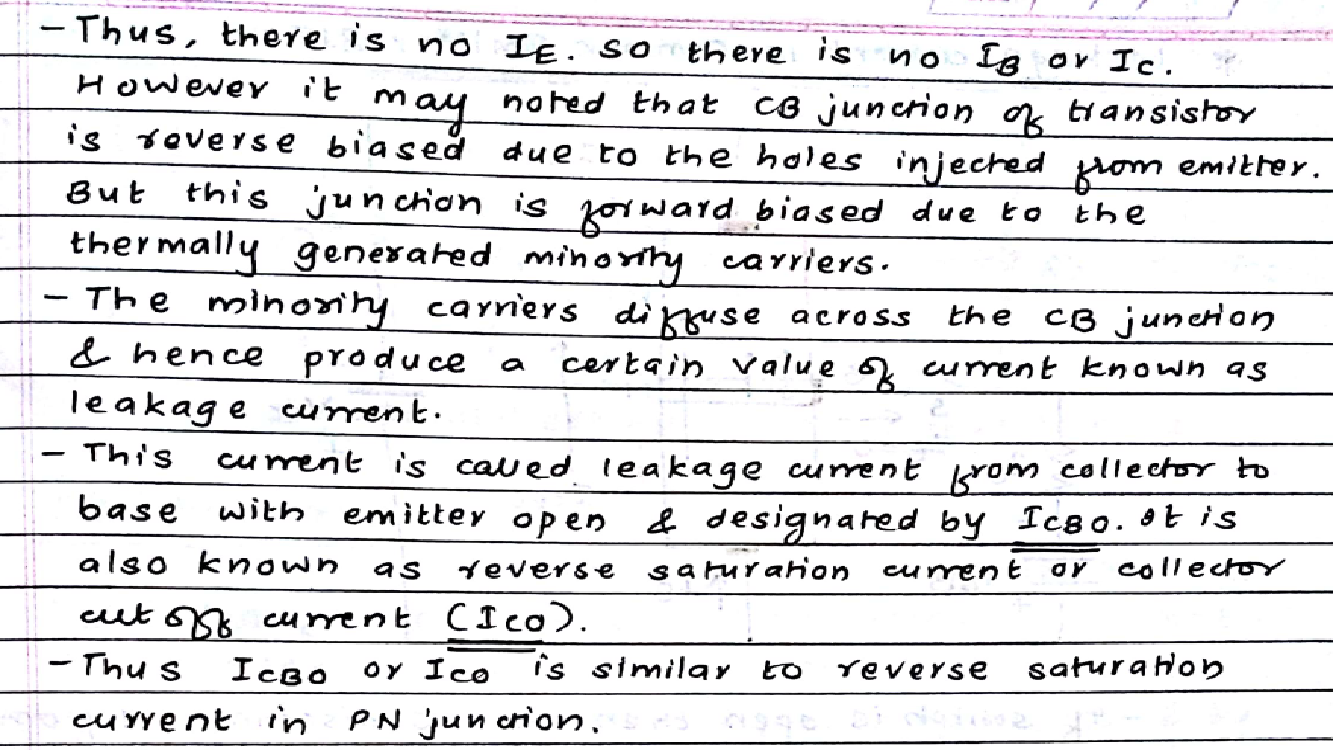 - Thus, there is no IE. so there is no IB or Ic.
However it may noted that CB junction of transistor
is reverse biased due to the holes injected from emitter.
But this junction is forward biased due to the
thermally generated minority carriers.
- The minority carriers diffuse across the CB junction
& hence produce a certain value of current known as
leakage current.
- This current is called leakage current from collector to
base with emitter open & designated by ICBO. It is
also known as reverse saturation current or collector
cut off current (Ico).
- Thus ICBO or Ico is similar to reverse saturation
current in PN junction.